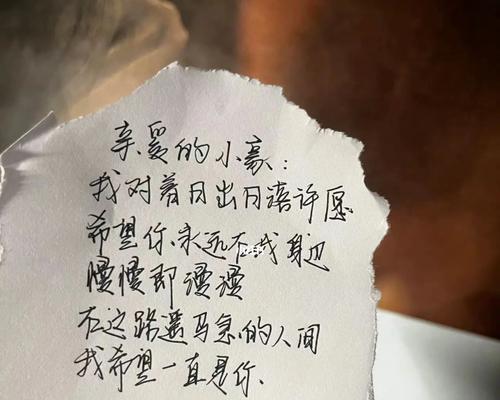 亲爱的小豪：
我对着日出日落许愿
希望你永远在我身边
慢慢即漫漫
在这路遥马急的人间
我希望一直是你.